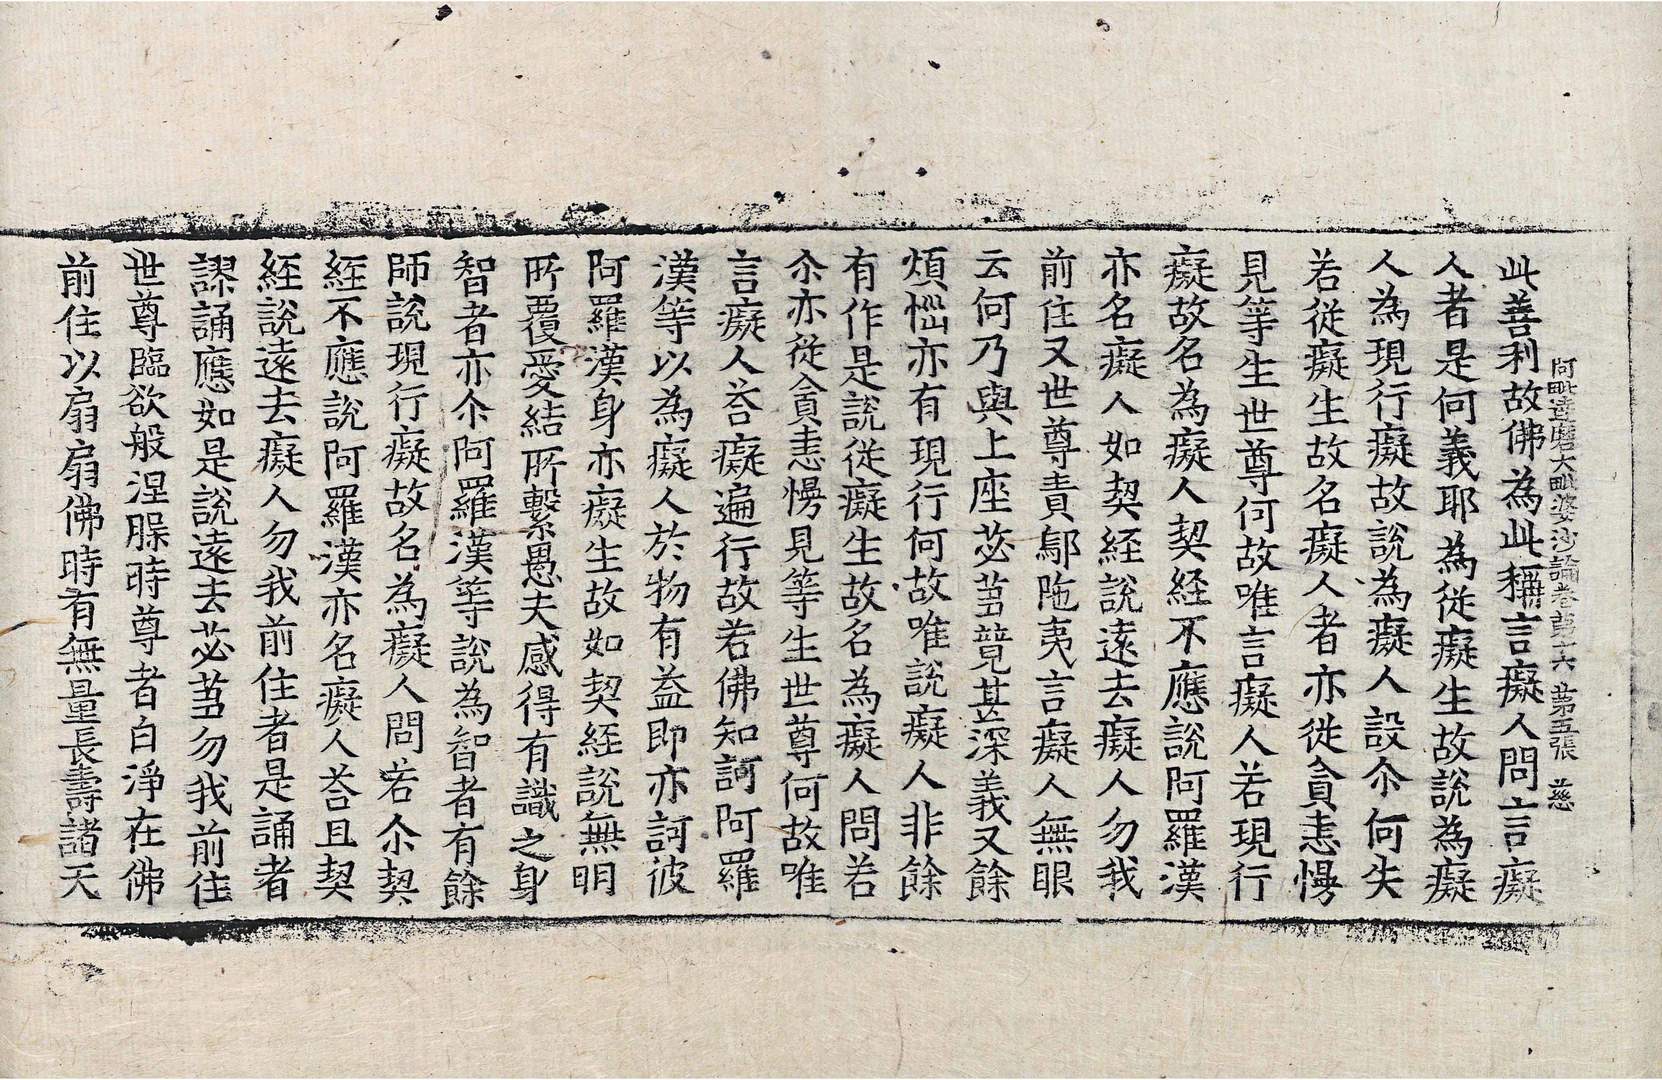 阿毗達磨大毗婆沙論卷第十六 第五張 慈
此善利故佛為此稱言癡人問言癡
人者是何義耶為從癡生故說為癡
人為現行癡故說為癡人設尒何失
若從癡生故名癡人者亦從貪恚慢
見等生世尊何故唯言癡人若現行
癡故名為癡人契經不應說阿羅漢
亦名癡人如契經說遠去癡人勿我
前住又世尊責鄔陁夷言癡人無眼
云何乃與上座苾芻競甚深義又餘
煩惱亦有現行何故唯說癡人非餘
有作是說從癡生故名為癡人問若
尒亦從貪恚慢見等生世尊何故唯
言癡人荅癡遍行故若佛知訶阿羅
漢等以為癡人於物有益即亦訶彼
阿羅漢身亦癡生故如契經說無明
所覆愛結所繫愚夫感得有識之身
智者亦尒阿羅漢等說為智者有餘
師說現行癡故名為癡人問若尒契
經不應說阿羅漢亦名癡人荅且契
經說遠去癡人勿我前住者是誦者
謬誦應如是說遠去苾芻勿我前住
世尊臨欲般涅脲時尊者白淨在佛
前住以扇扇佛時有無量長壽諸天